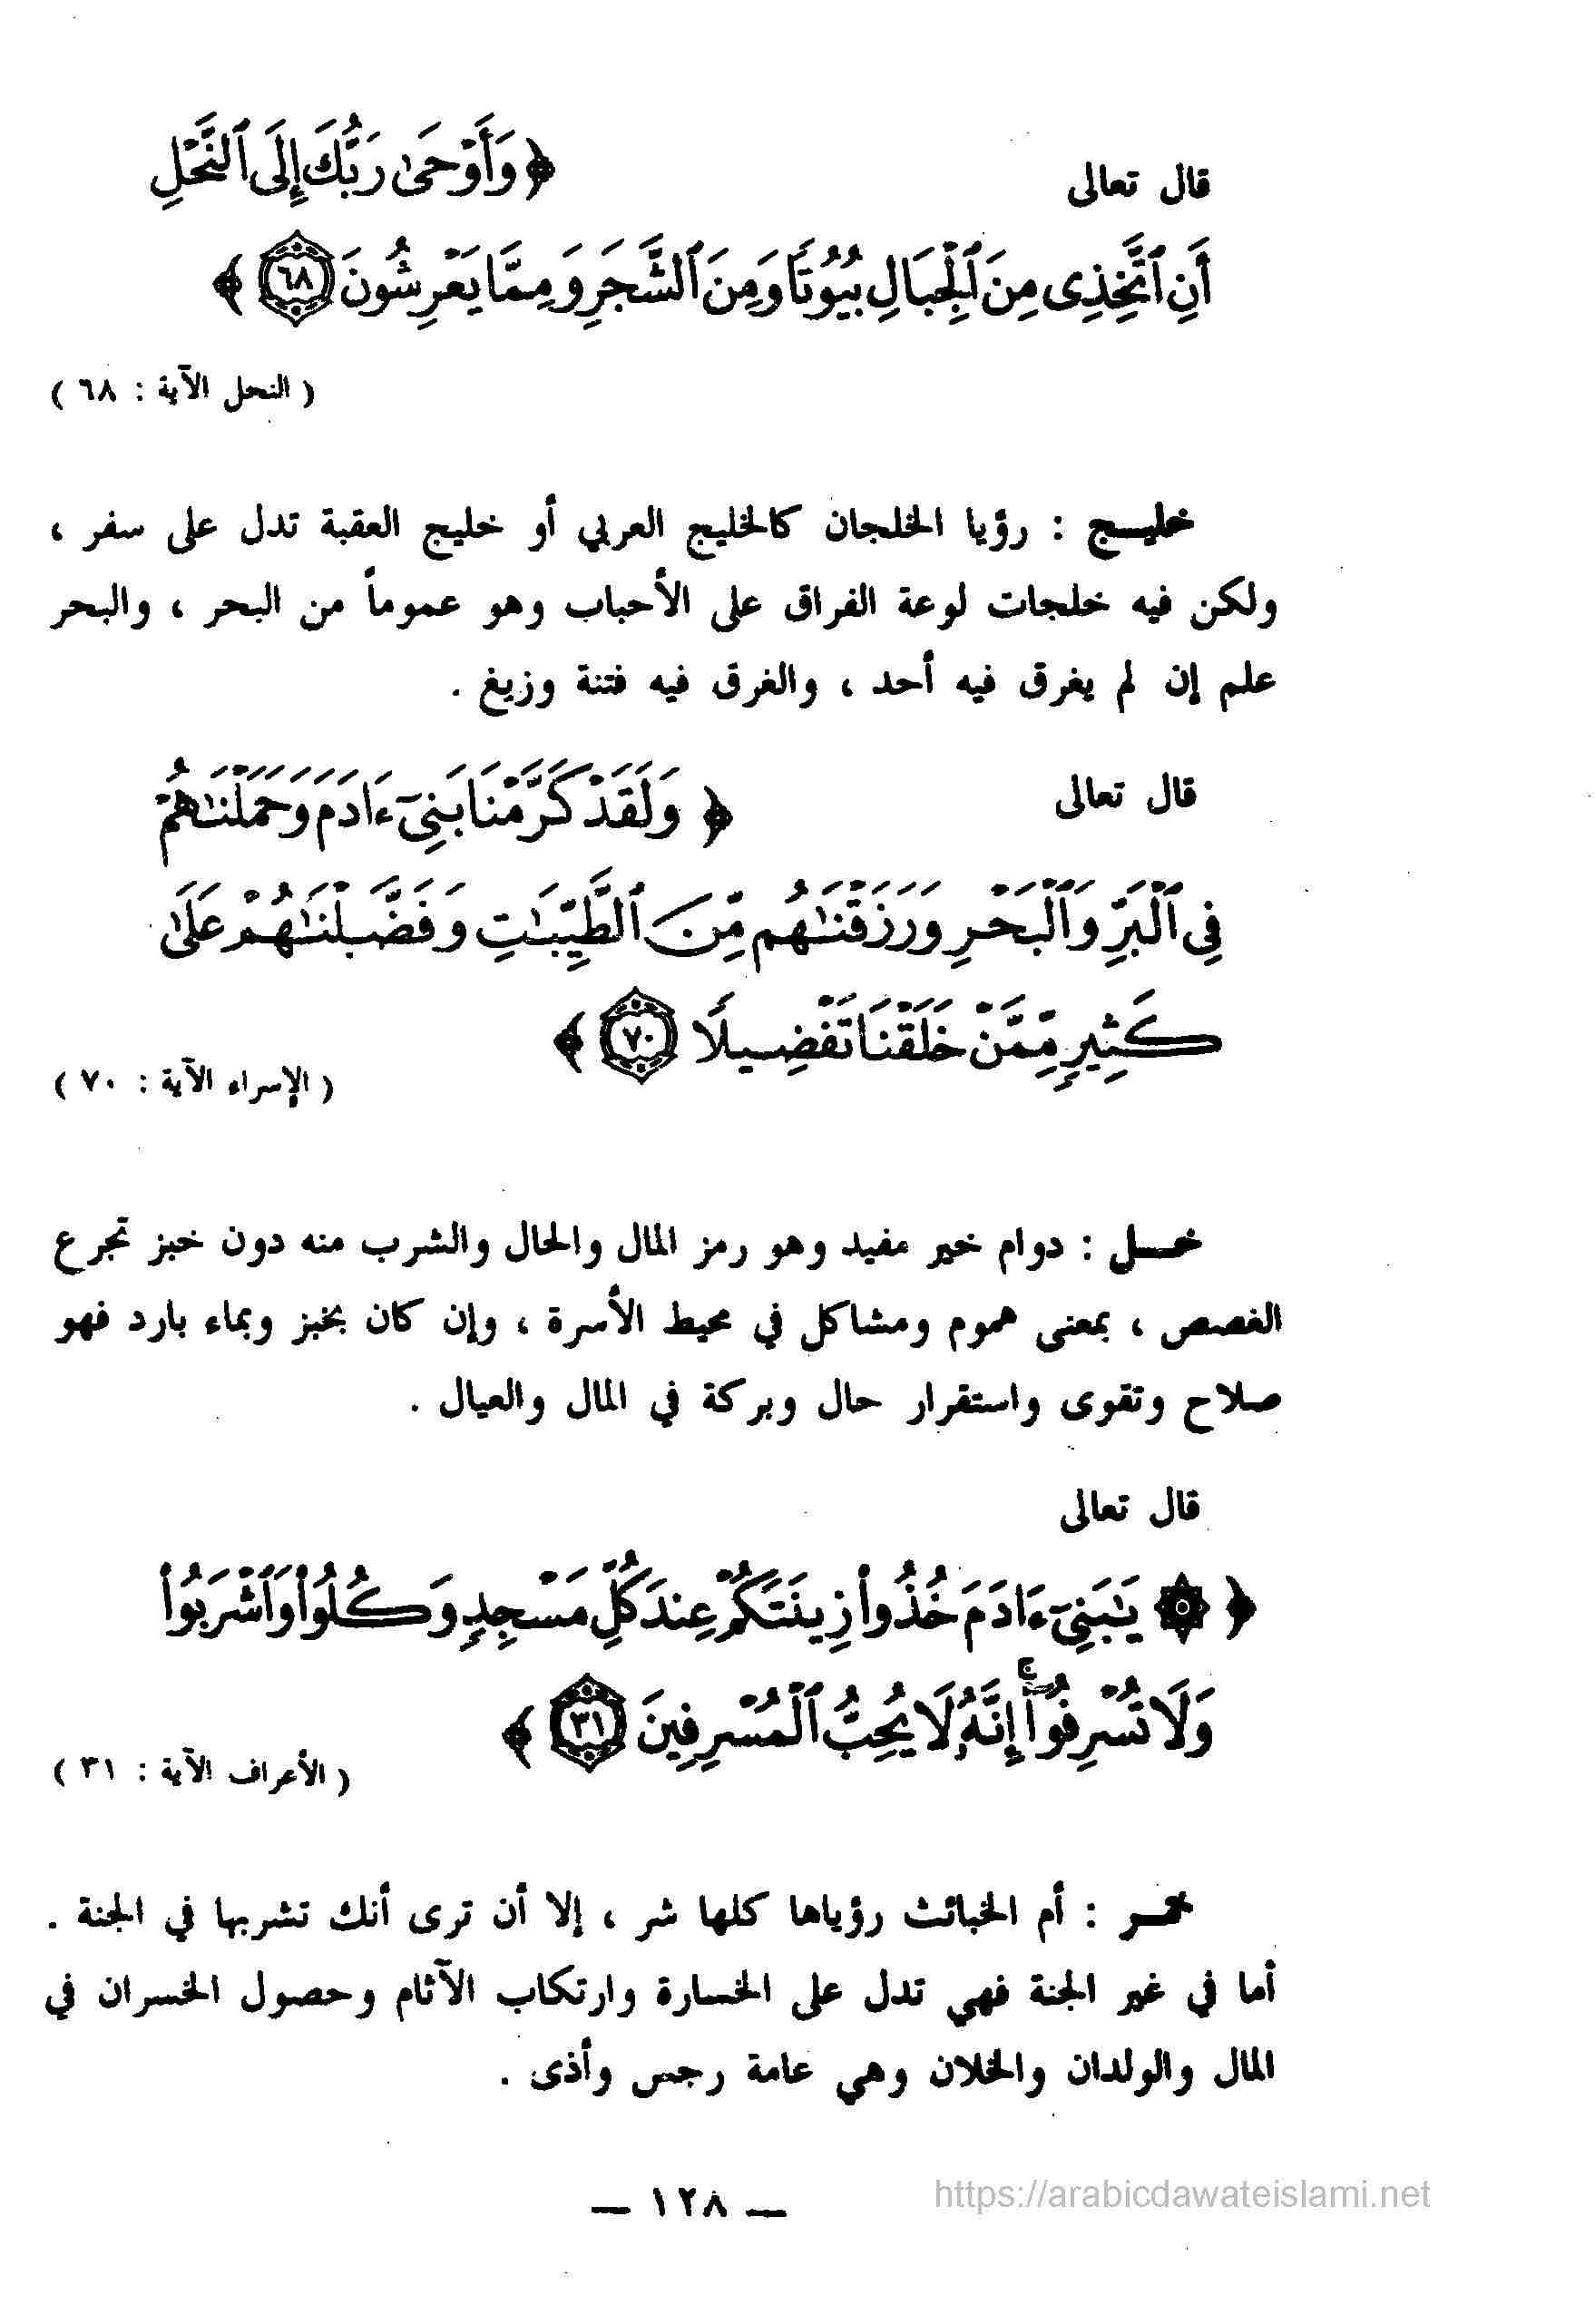 قال تعالى ﴿ وَأَوْحَىٰ رَبُّكَ إِلَى ٱلنَّحْلِ
أَنِ ٱتَّخِذِى مِنَ ٱلْجِبَالِ بُيُوتًا وَمِنَ ٱلشَّجَرِ وَمِمَّا يَعْرِشُونَ ٦٨ ﴾
( النحل الآية : ٦٨ )
خليج : رؤيا الخلجان كالخليج العربي أو خليج العقبة تدل على سفر ،
ولكن فيه خلجات لوعة الفراق على الأحباب وهو عموماً من البحر ، والبحر
علم إن لم يغرق فيه أحد ، والغرق فيه فتنة وزيغ .
قال تعالى ﴿ وَلَقَدْ كَرَّمْنَا بَنِىٓ ءَادَمَ وَحَمَلْنَٰهُمْ
فِى ٱلْبَرِّ وَٱلْبَحْرِ وَرَزَقْنَٰهُم مِّنَ ٱلطَّيِّبَٰتِ وَفَضَّلْنَٰهُمْ عَلَىٰ
كَثِيرٍ مِّمَّنْ خَلَقْنَا تَفْضِيلًا ٧٠ ﴾
( الإسراء الآية : ٧٠ )
خل : دوام خير مفيد وهو رمز المال والحال والشرب منه دون خبز تجرع
الغصص ، بمعنى هموم ومشاكل في محيط الأسرة ، وإن كان بخبز وبماء بارد فهو
صلاح وتقوى واستقرار حال وبركة في المال والعيال .
قال تعالى
﴿ ۞ يَٰبَنِىٓ ءَادَمَ خُذُوا۟ زِينَتَكُمْ عِندَ كُلِّ مَسْجِدٍ وَكُلُوا۟ وَٱشْرَبُوا۟
وَلَا تُسْرِفُوٓا۟ ۚ إِنَّهُۥ لَا يُحِبُّ ٱلْمُسْرِفِينَ ٣١ ﴾
( الأعراف الآية : ٣١ )
خمر : أم الخبائث رؤياها كلها شر ، إلا أن ترى أنك تشربها في الجنة .
أما في غير الجنة فهي تدل على الخسارة وارتكاب الآثام وحصول الخسران في
المال والولدان والخلان وهي عامة رجس وأذى .
— ١٢٨ —
https://arabicdawateislami.net